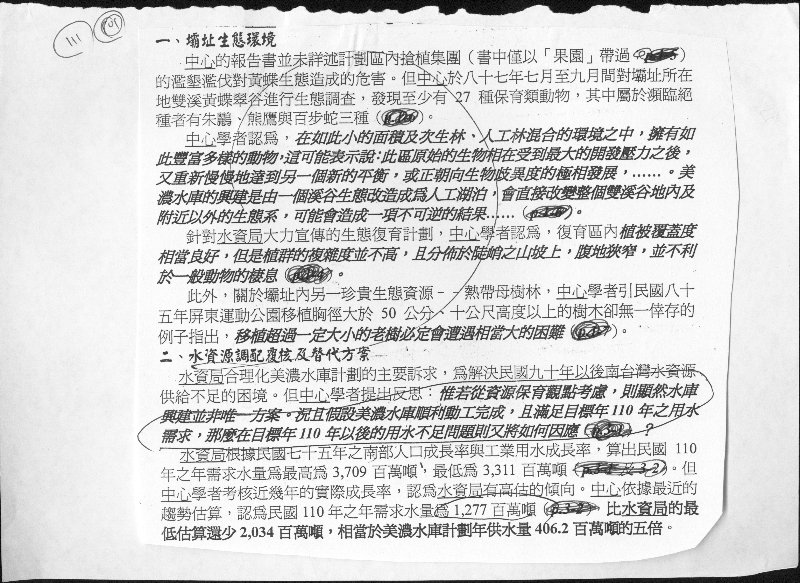 111
一、壩址生態環境
中心的報告書並未詳述計劃區內搶植集團（書中僅以「果園」帶過
的濫墾濫伐對黃蝶生態造成的危害。但中心於八十七年七月至九月間對壩址所在
地雙溪黃蝶翠谷進行生態調查，發現至少有 27 種保育類動物，其中屬於瀕臨絕
種者有朱鸝、熊鷹與百步蛇三種（ ）。
中心學者認為，在如此小的面積及次生林、人工林混合的環境之中，擁有如
此豐富多樣的動物，這可能表示說：此區原始的生物相在受到最大的開發壓力之後，
又重新慢慢地達到另一個新的平衡，或正朝向生物歧異度的極相發展，……。美
濃水庫的興建是由一個溪谷生態改造成為人工湖泊，會直接改變整個雙溪谷地內及
附近以外的生態系，可能會造成一項不可逆的結果……（ ）。
針對水資局大力宣傳的生態復育計劃，中心學者認為，復育區內植被覆蓋度
相當良好，但是植群的複雜度並不高，且分佈於陡峭之山坡上，腹地狹窄，並不利
於一般動物的棲息（ ）。
此外，關於壩址內另一珍貴生態資源－－熱帶母樹林，中心學者引民國八十
五年屏東運動公園移植胸徑大於 50 公分、十公尺高度以上的樹木卻無一倖存的
例子指出，移植超過一定大小的老樹必定會遭遇相當大的困難（ ）。
二、水資源調配覆核及替代方案
水資局合理化美濃水庫計劃的主要訴求，為解決民國九十年以後南台灣水資源
供給不足的困境。但中心學者提出反思：惟若從資源保育觀點考慮，則顯然水庫
興建並非唯一方案。況且假設美濃水庫順利動工完成，且滿足目標年 110 年之用水
需求，那麼在目標年 110 年以後的用水不足問題則又將如何因應（ ）？
水資局根據民國七十五年之南部人口成長率與工業用水成長率，算出民國 110
年之年需求水量為最高為 3,709 百萬噸、最低為 3,311 百萬噸（p.3-2 及 3-2）。但
中心學者考核近幾年的實際成長率，認為水資局有高估的傾向。中心依據最近的
趨勢估算，認為民國 110 年之年需求水量為 1,277 百萬噸（p.3-2）比水資局的最
低估算還少 2,034 百萬噸，相當於美濃水庫計劃年供水量 406.2 百萬噸的五倍。